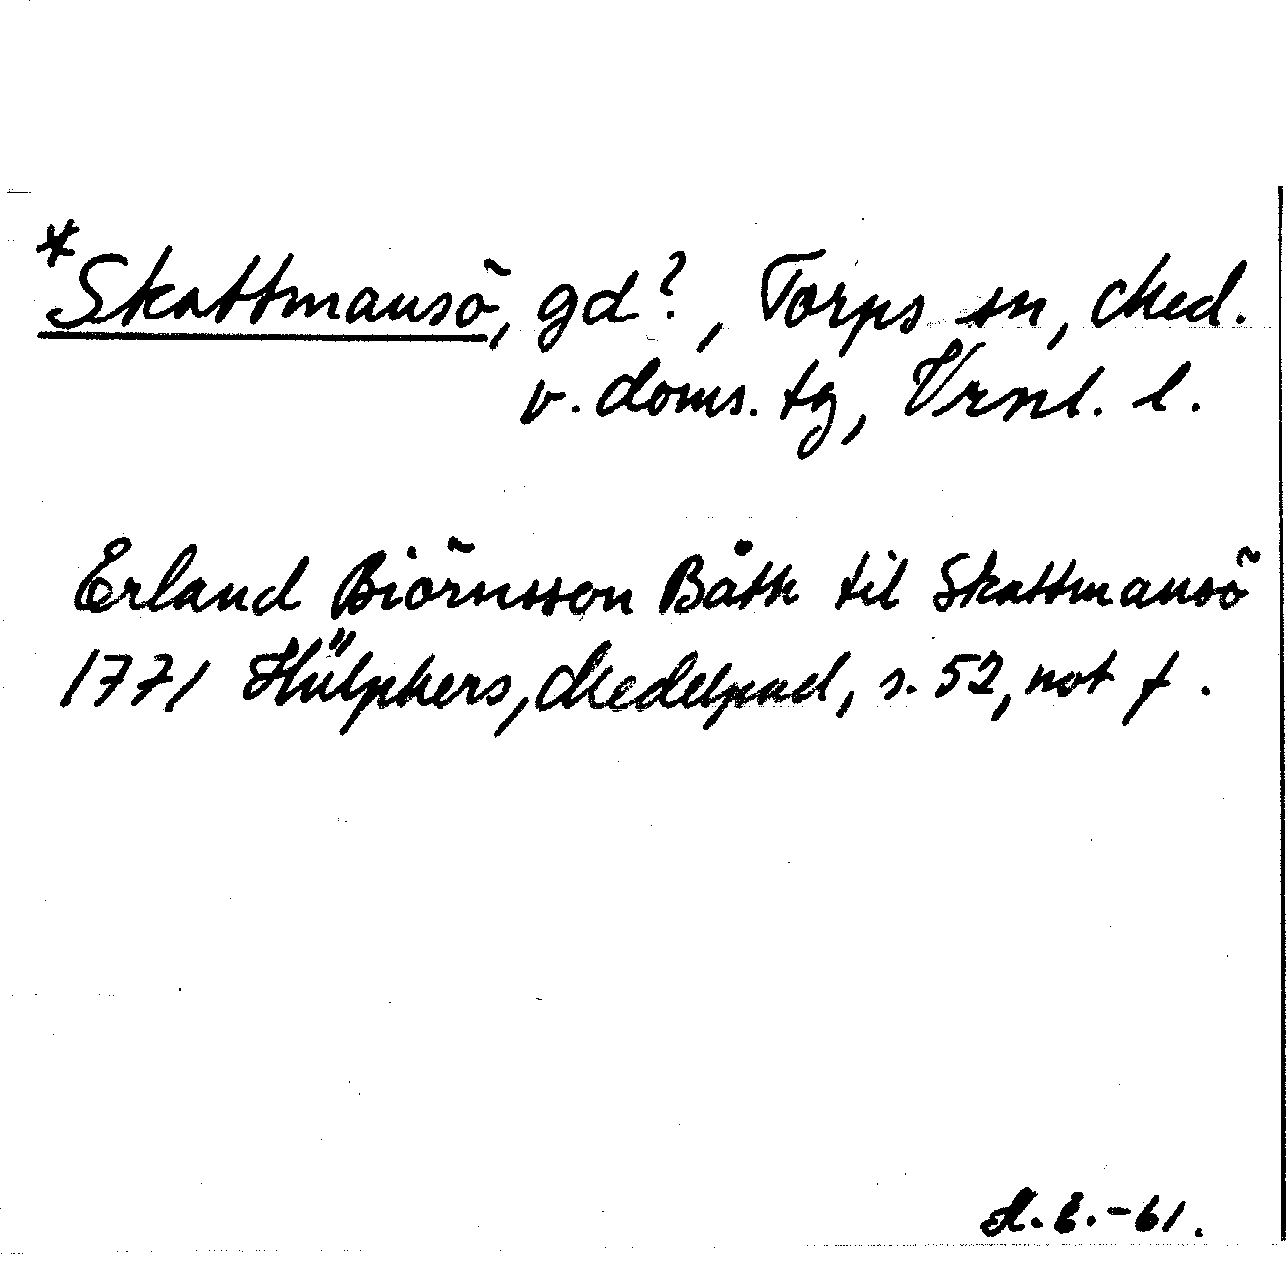 *Skattmansö, gd?, Torps sn, Med.
v. doms. tg, Vrnl. l.
Erland Biörnsson Bååk til Skattmansö
1771 Hülphers, Medelpad, s. 52, not f.
H.E.-61.